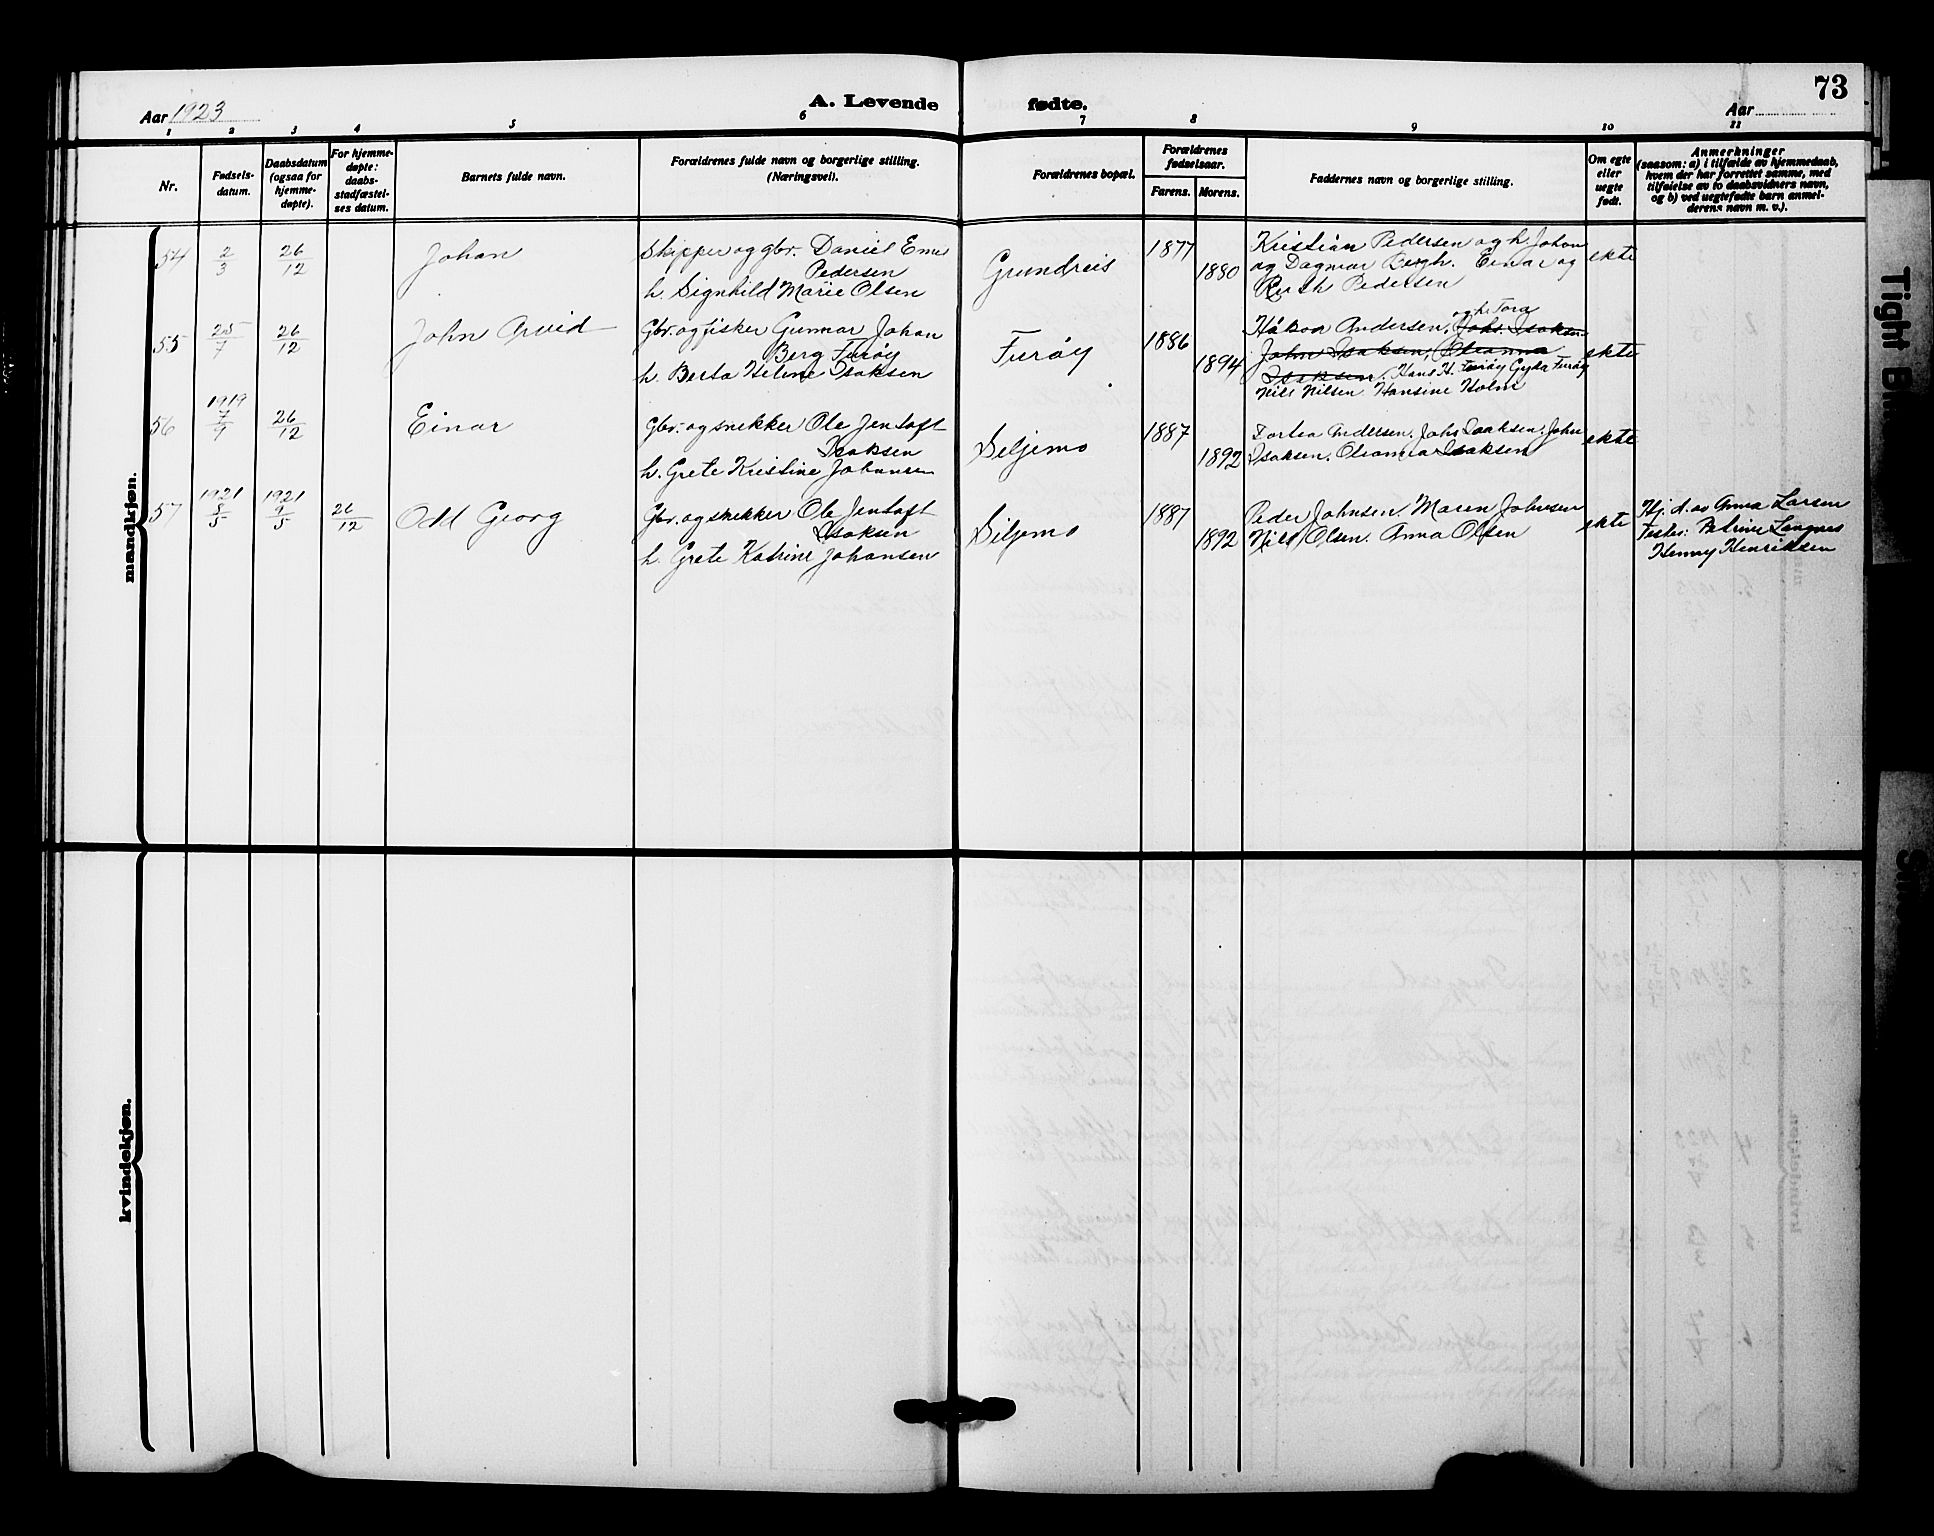 73
Aar 1923
A. Levende fødte.
Aar
1 2 3 4 5 6 7 8 9 10 11
Nr.
Fødsels-
datum.
Daabsdatum
(ogsaa for
hjemme-
døpte).
For hjemme-
døpte:
daabs-
stadfæstel-
ses datum.
Barnets fulde navn.
Forældrenes fulde navn og borgerlige stilling.
(Næringsvei).
Forældrenes bopæl.
Forældrenes
fødselsaar.
Farens. Morens.
Faddernes navn og borgerlige stilling.
Om egte
eller
uegte
født.
Anmerkninger
(saasom: a) i tilfælde av hjemmedaab,
hvem der har forrettet samme, med
tilføielse av to daabsvidners navn,
og b) ved uegtefødte barn anmel-
derens navn m. v.).
mandkjøn.
54
2/3
26/12
Johan
Skipper og gbr. Daniel
Pedersen
h. Signhild Marie Olsen
Grundreis
1877
1880
Kristian Pedersen og h. Johan
og Dagmar Bergh. Einar og
Ruth Pedersen
ekte
55
25/7
26/12
John Arvid
Gbr. og fisker Gunnar Johan
Berg Furøy
h. Berta Helene Isaksen
Furøy
1886
1894
og h. Tora
Håkon Andersen, Johs. Isaksen
John Isaksen, Oleanna
Isaksen. Hans H. Furøy Gyda Furøy
Nils Nilsen Hansine Holm
ekte
56
1919
7/7
26/12
Einar
Gbr. og snekker Ole Jentoft
Isaksen
h. Grete Kristine Johansen
Seljemo
1887
1892
Tortea Andersen. Johs Isaksen. John
Isaksen. Oleanna Isaksen
ekte
57
1921
8/5
1921
9/5
26/12
Odd Georg
Gbr. og snekker Ole Jentoft
Isaksen
h. Grete Katrine Johansen
Siljemo
1887
1892
Peder Johnsen, Maren Johnsen
Nils Olsen. Anna Olsen
ekte
Hj. d. av Anna Larsen
Test.: Petrine Langnes
Henny Henriksen
kvindekjøn.
Tight